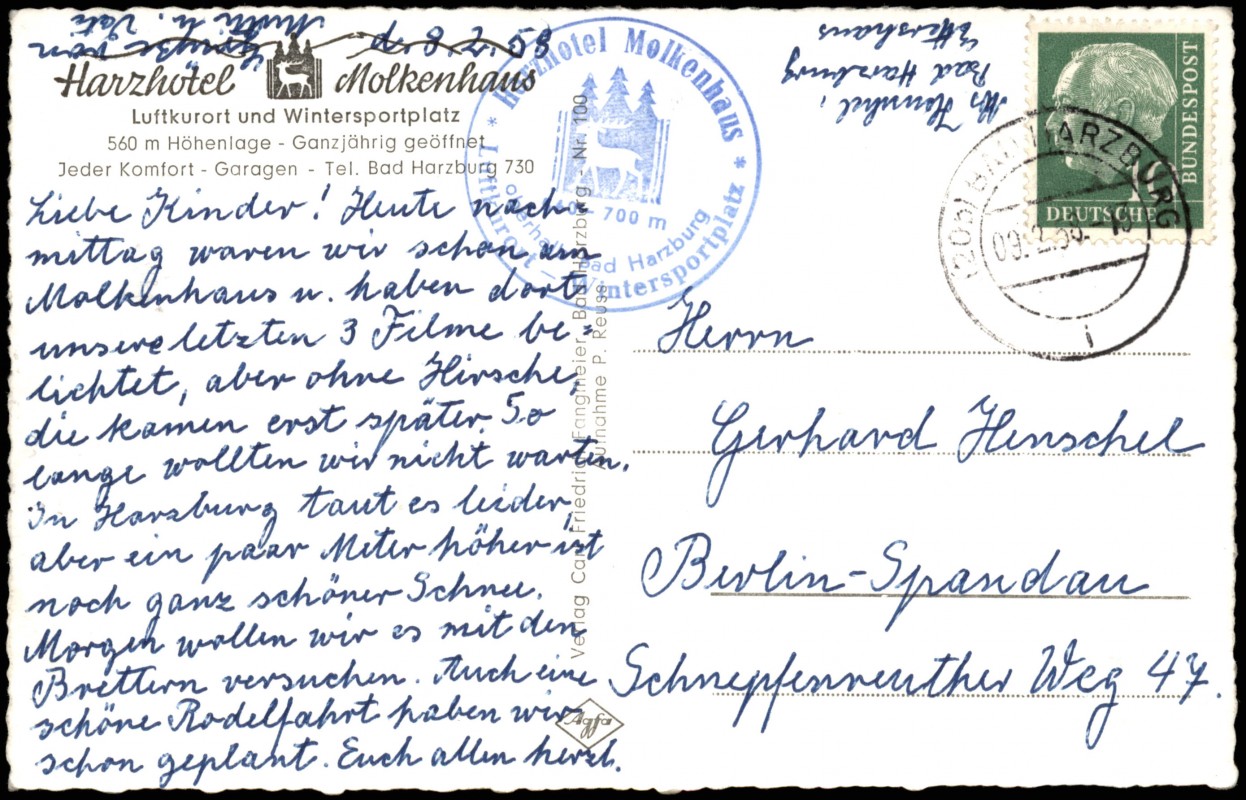 Harzhotel Molkenhaus
Luftkurort und Wintersportplatz
560 m Höhenlage - Ganzjährig geöffnet
Jeder Komfort - Garagen - Tel. Bad Harzburg 730
d. 8.2.58
Liebe Kinder! Heute nach-
mittag waren wir schon am
Molkenhaus u. haben dort
unsere letzten 3 Filme be=
lichtet, aber ohne Hirsche,
die kamen erst später. So
lange wollten wir nicht warten.
In Harzburg taut es leider,
aber ein paar Meter höher ist
noch ganz schöner Schnee.
Morgen wollen wir es mit den
Brettern versuchen. Auch eine
schöne Rodelfahrt haben wir
schon geplant. Euch allen herzl.
Grüße von
Mutti u. Vati
Harzhotel Molkenhaus
Luftkurort - Wintersportplatz
- 700 m
oberhalb Bad Harzburg
Verlag Carl Friedrich Fangmeier, Bad Harzburg - Nr. 100
Aufnahme P. Reuse
Agfa
Henschel,
Bad Harzburg
DEUTSCHE
BUNDESPOST
(20b) BAD HARZBURG
09.2.58.-13
i
Herrn
Gerhard Henschel
Berlin-Spandau
Schnepfenreuther Weg 47.